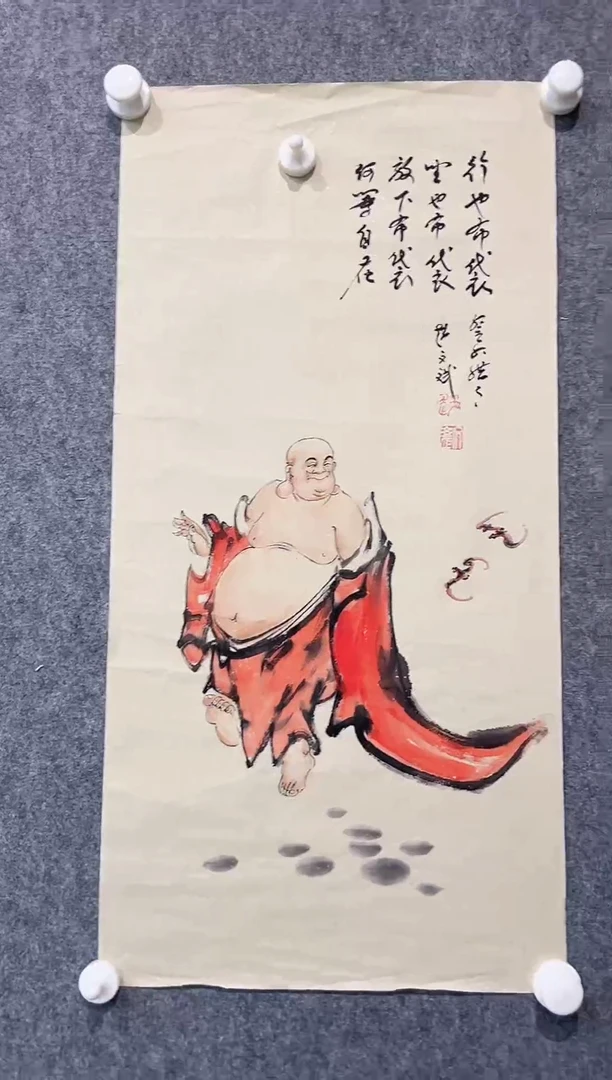 行也布袋
坐也布袋
放下布袋
何等自在
文斌